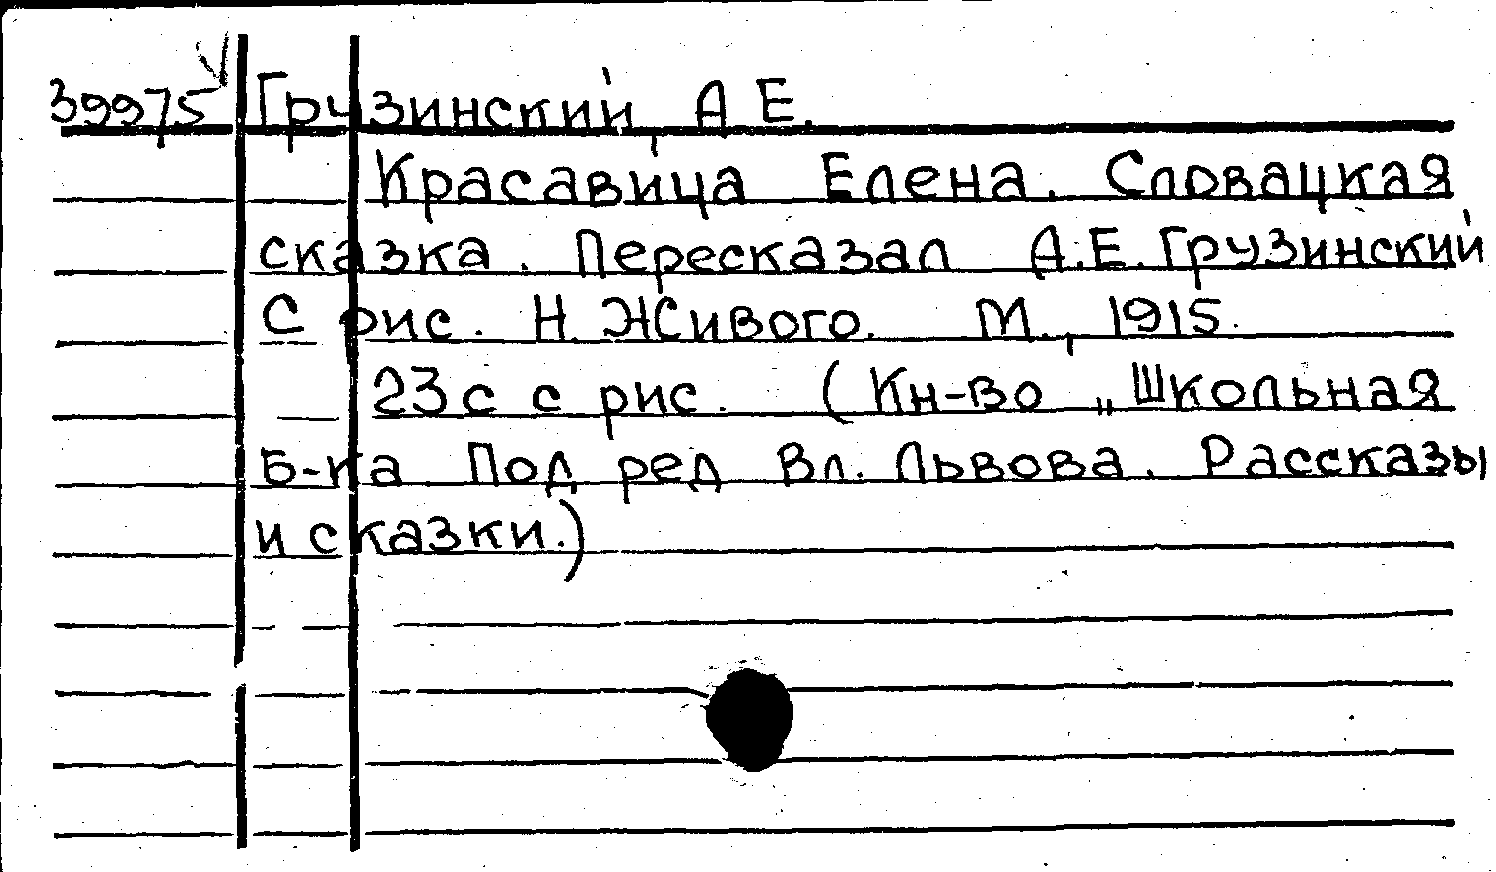 39975 Грузинский, А Е.
Красавица Елена. Словацкая
сказка. Пересказал А.Е. Грузинский
С рис. Н. Живого. М., 1915.
23 с с рис. (Кн-во „Школьная
Б-ка Под ред Вл. Львова. Рассказы
и сказки.)